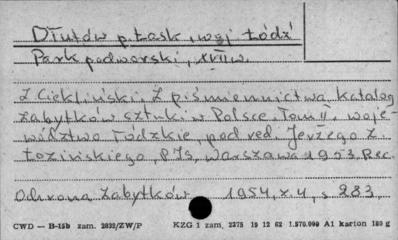 Dłutów p. Łask, woj. Łódź
Park podworski, XVII w.
Z. Ciekliński, Z piśmiennictwa katalog
zabytków sztuki w Polsce. Tom II, woje-
wództwo Łódzkie, pod red. Jerzego Z.
Łozińskiego, PIS, Warszawa 1953. Rec.
Ochrona Zabytków 1954, z. 4, s. 283
CWD — B-15b zam. 2832/ZW/P KZG 1 zam. 2275 19 12 62 1.570.000 A1 karton 180 g